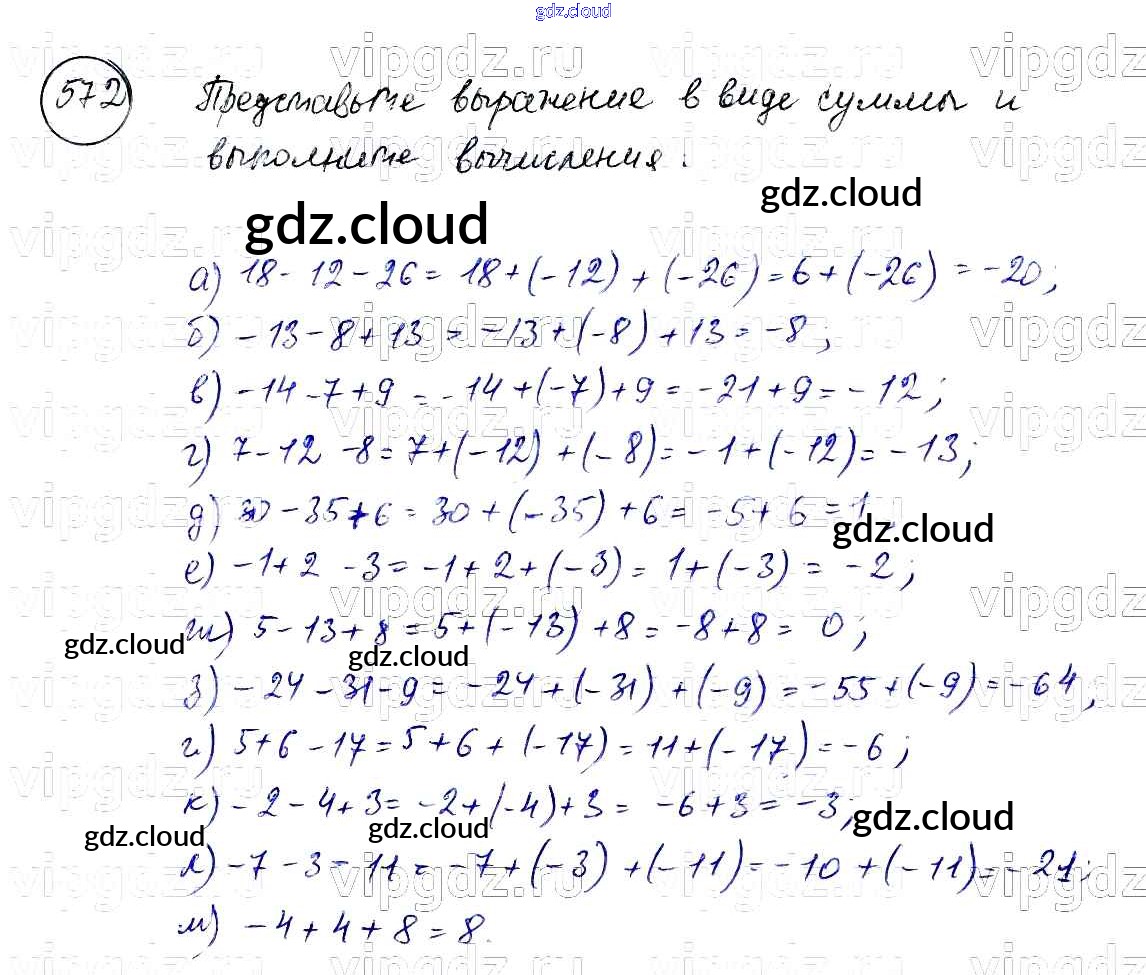 gdz.cloud
572 Представьте выражение в виде суммы и
выполните вычисления:
gdz.cloud
gdz.cloud
а) 18 - 12 - 26 = 18 + (-12) + (-26) = 6 + (-26) = -20;
б) -13 - 8 + 13 = -13 + (-8) + 13 = -8;
в) -14 - 7 + 9 = -14 + (-7) + 9 = -21 + 9 = -12;
г) 7 - 12 - 8 = 7 + (-12) + (-8) = -1 + (-12) = -13;
д) 30 - 35 + 6 = 30 + (-35) + 6 = -5 + 6 = 1
gdz.cloud
е) -1 + 2 - 3 = -1 + 2 + (-3) = 1 + (-3) = -2;
ж) 5 - 13 + 8 = 5 + (-13) + 8 = -8 + 8 = 0;
gdz.cloud
gdz.cloud
з) -24 - 31 - 9 = -24 + (-31) + (-9) = -55 + (-9) = -64,
и) 5 + 6 - 17 = 5 + 6 + (-17) = 11 + (-17) = -6;
к) -2 - 4 + 3 = -2 + (-4) + 3 = -6 + 3 = -3;
gdz.cloud
gdz.cloud
gdz.cloud
л) -7 - 3 - 11 = -7 + (-3) + (-11) = -10 + (-11) = -21;
м) -4 + 4 + 8 = 8.
vipgdz.ru